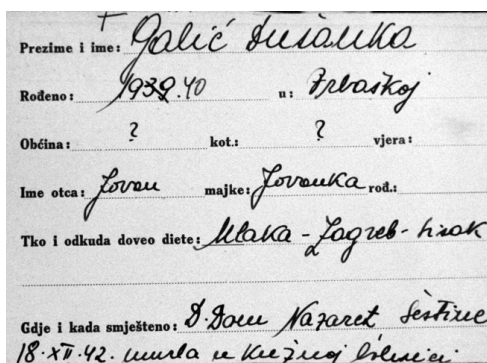 Prezime i ime: Galić Dušanka
Rođeno: 1939.40 u: Vrbaškoj
Obćina: ? kot.: ? vjera:
Ime otca: Jovan majke: Jovanka rođ.:
Tko i odkuda doveo diete: Mlaka - Zagreb - Sisak
Gdje i kada smješteno: D. Dom Nazaret Šestine
18.XII.42. umrla u Kužnoj bolnici